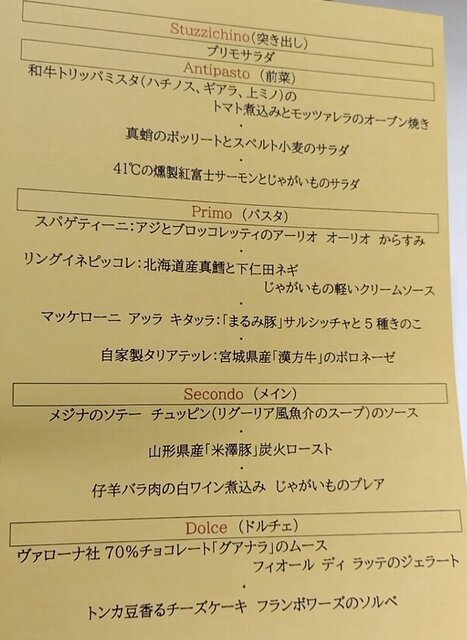 Stuzzichino(突き出し)
プリモサラダ
Antipasto (前菜)
和牛トリッパミスタ(ハチノス、ギアラ、上ミノ)の
トマト煮込みとモッツァレラのオーブン焼き
・
真蛸のボッリートとスペルト小麦のサラダ
・
41℃の燻製紅富士サーモンとじゃがいものサラダ
Primo (パスタ)
スパゲティーニ:アジとブロッコレッティのアーリオ オーリオ からすみ
・
リングイネピッコレ:北海道産真鱈と下仁田ネギ
じゃがいもの軽いクリームソース
・
マッケローニ アッラ キタッラ:「まるみ豚」サルシッチャと5種きのこ
・
自家製タリアテッレ:宮城県産「漢方牛」のボロネーゼ
Secondo (メイン)
メジナのソテー チュッピン(リグーリア風魚介のスープ)のソース
・
山形県産「米澤豚」炭火ロースト
・
仔羊バラ肉の白ワイン煮込み じゃがいものプレア
Dolce (ドルチェ)
ヴァローナ社 70%チョコレート「グアナラ」のムース
フィオール ディ ラッテのジェラート
・
トンカ豆香るチーズケーキ フランボワーズのソルベ